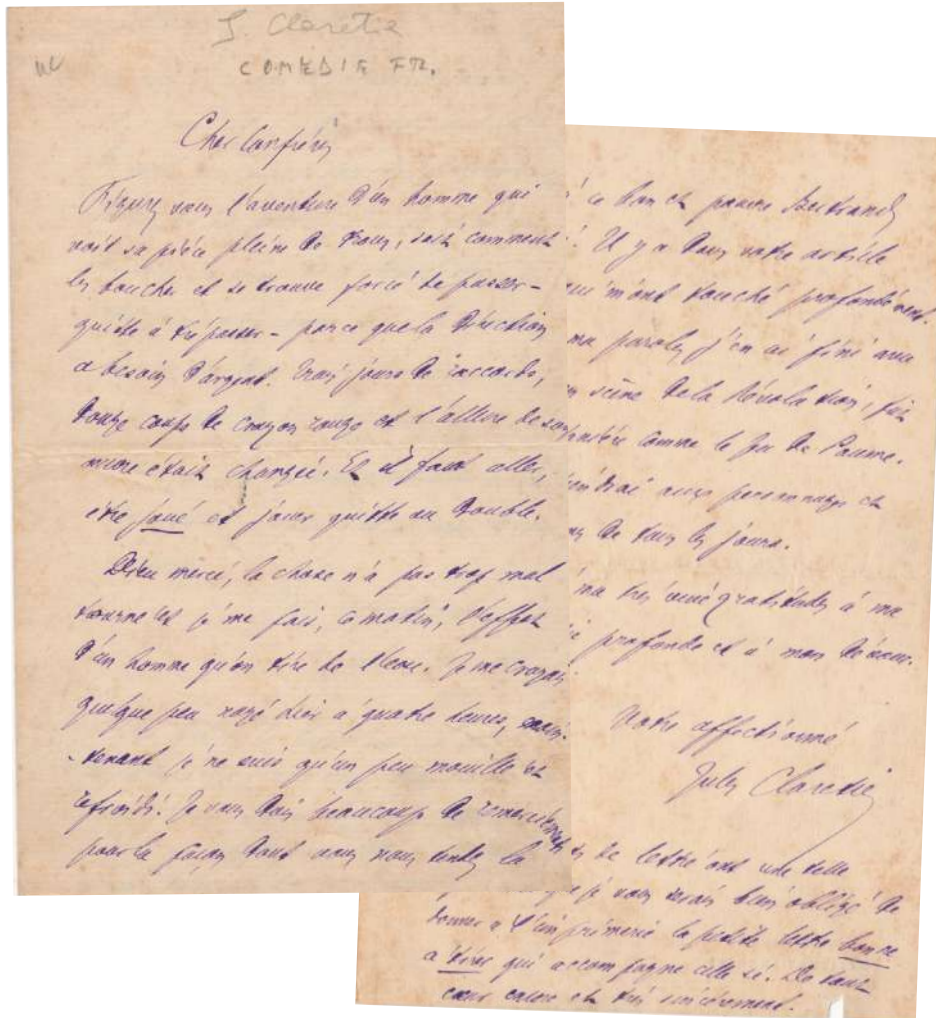 J. Claretie
COMÉDIE FR.
Cher Confrère,
Figurez vous l'aventure d'un homme qui
voit sa pièce pleine de trous, sait comment
les boucher et se trouve forcé de passer -
quitte à trépasser - parce que la Direction
a besoin d'argent. Trois jours de raccords,
douze coups de crayon rouge et l'allure de son
œuvre était changée. Et il faut aller,
être joué et jouer quitte ou double.
Dieu merci, la chose n'a pas trop mal
tourné et je me fais, ce matin, l'effet
d'un homme qu'on tire de l'eau. Je me croyais
quelque peu noyé hier à quatre heures, main-
-tenant je ne suis qu'un peu mouillé et
refroidi. Je vous dois beaucoup de remerciements
pour la façon dont vous nous tendez la
ce bon et pauvre Bertrand
! Il y a dans votre article
qui m'ont touché profondément.
ma parole, j'en ai fini avec
scène de la Révolution, fut
comme le Jeu de Paume.
aux personnages et
de tous les jours.
ma très vive gratitude, à ma
profonde et à mon dévoue.
Votre affectionné
Jules Claretie
de lettre ont une telle
que je vous serais bien obligé de
donner à l'imprimerie la petite lettre bonne
à tirer qui accompagne celle ci. De tout
cœur encore et très sincèrement.